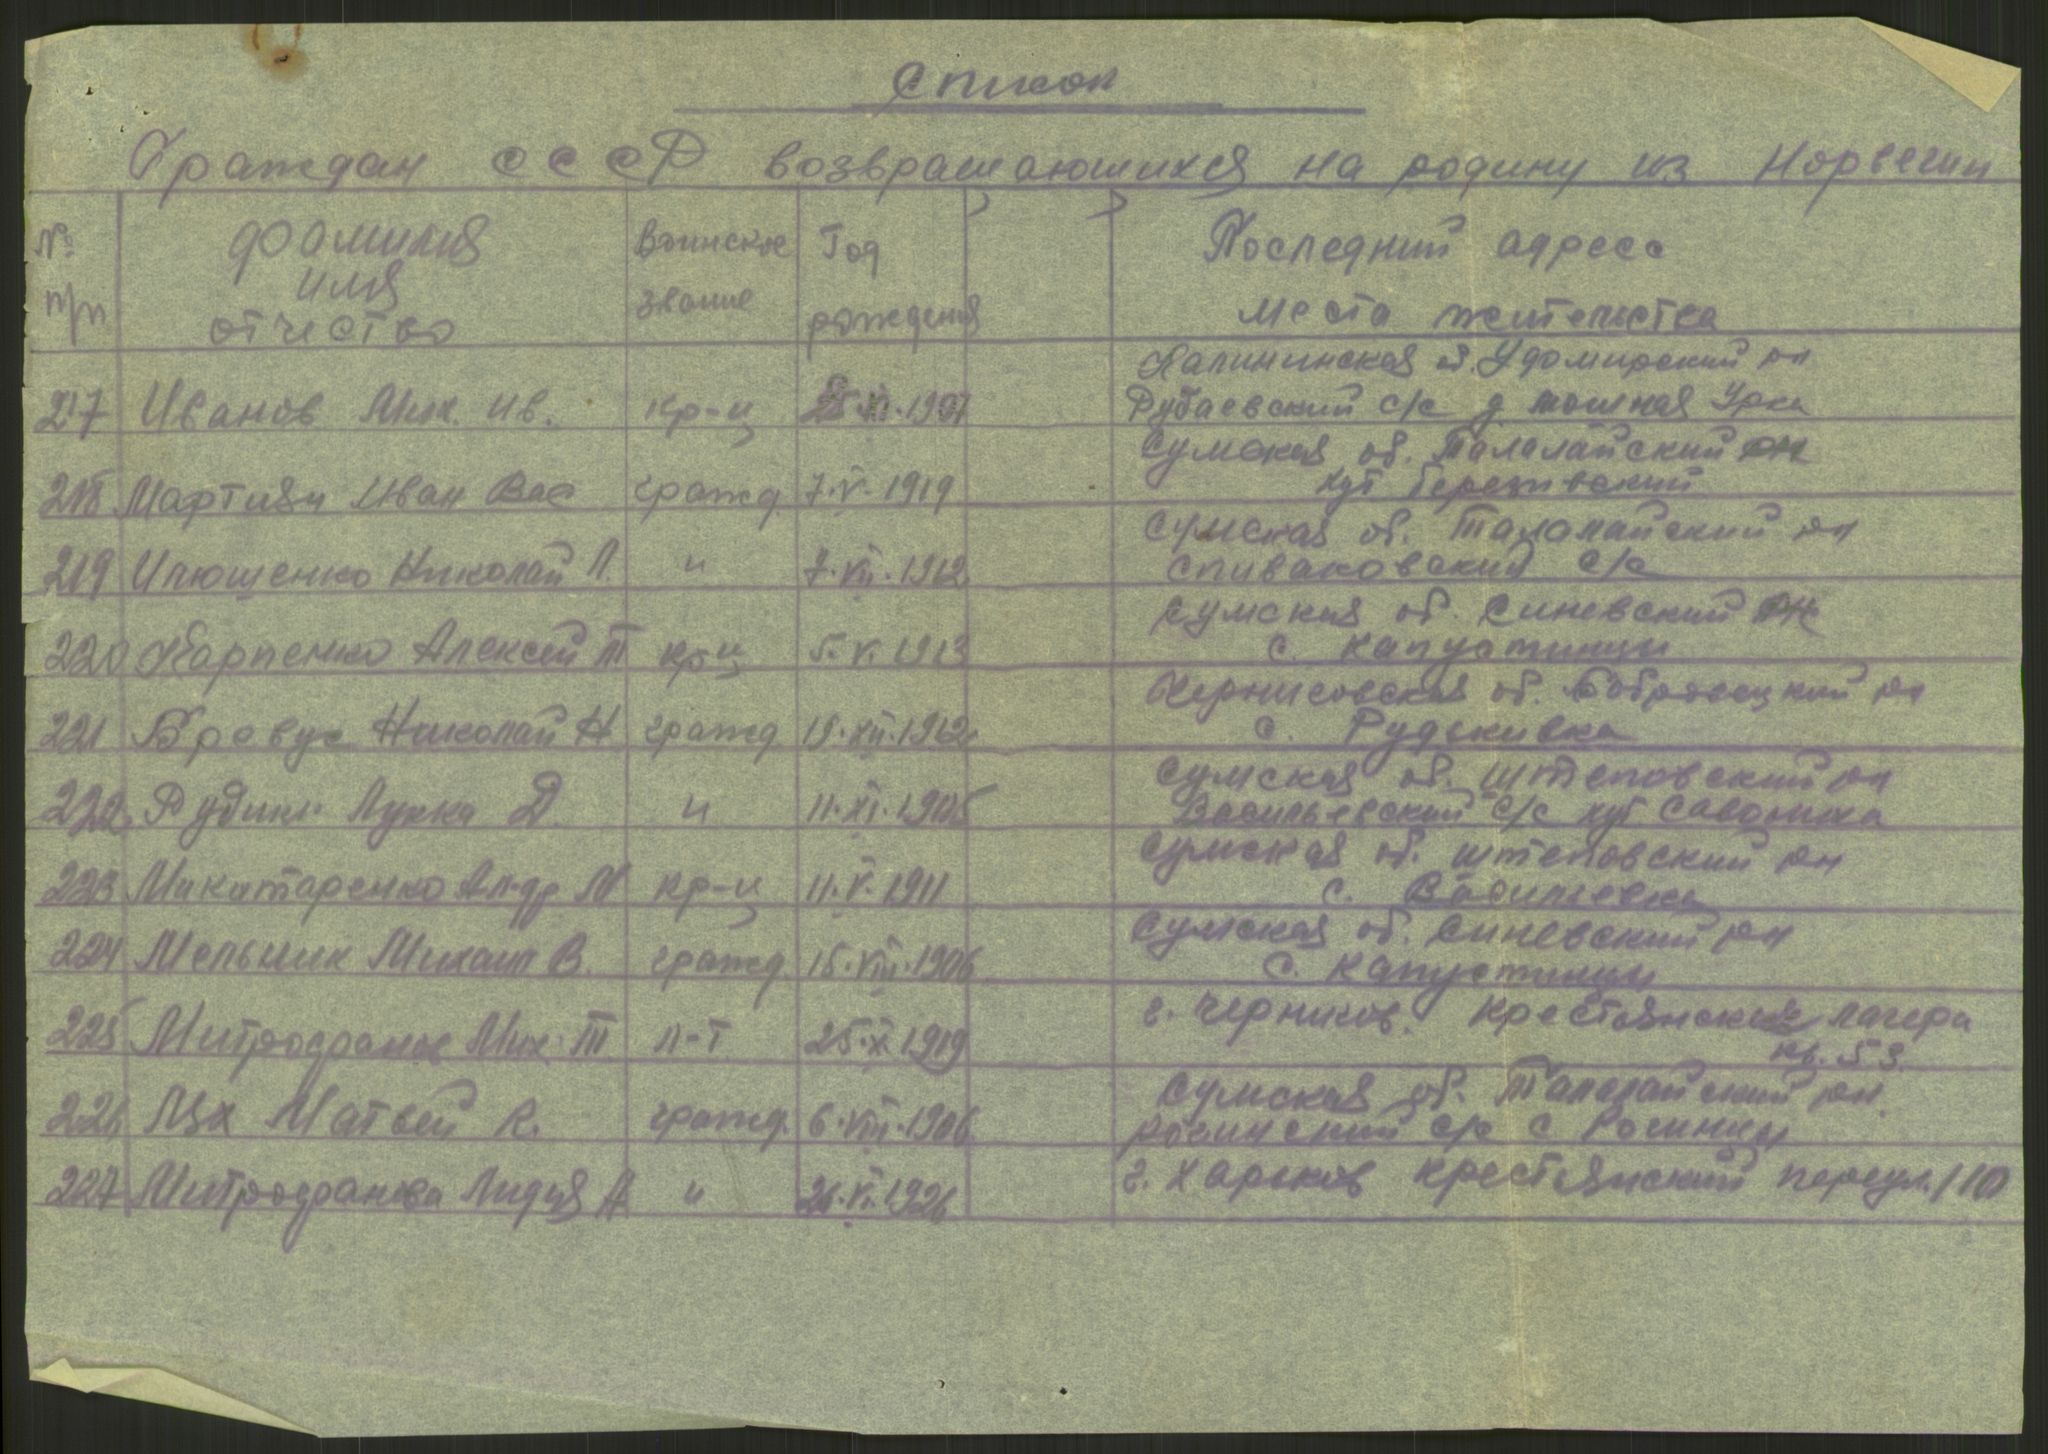 Список
Граждан СССР возвращающихся на родину из Норвегии
№ п/п
фамилия имя отчество
Воинское звание
Год рождения
Последний адресс места жительства
217 Иванов Мих. Ив. кр-ц 25.XI.1907 Калининская об. Удомирский рн
Рубаевский с/с д
218 Мартиян Иван Вас гражд 7.V.1919 Сумская об. Талалайский рн
хут Березивский
219 Илющенко Николай Л. " 7.VII.1912 Сумская об. Талалайский рн
Спиваковский с/с
220 Карпенко Алексей Т кр-ц 5.V.1913 Сумская об. Синевский рн
с. Капустинцы
221 Бровус Николай Н гражд 19.XII.1912 об. Бобровецкий рн
с. Рудькивка
222 Рудик Лукка Д. " 11.XI.1905 Сумская об. Штеповский рн
Васильевский с/с хут
223 Микитаренко Ал-др М кр-ц 11.V.1911 Сумская об. Штеповский рн
с. Васильевка
224 Мельник Михаил В. гражд. 15.VIII.1906 Сумская об. Синевский рн
с. Капустинцы
225 Митрофанов Мих. Т л-т 25.X.1919 г. Чернигов. лагера
кв. 53
226 Лях Матвей К. гражд. 6.VIII.1906 Сумская об. Талалайский рн.
рогинский с/с с Рогинцы
227 Митрофанова Лидия А " 26.VI.1926 г. Харьков крестьянский переул. 110